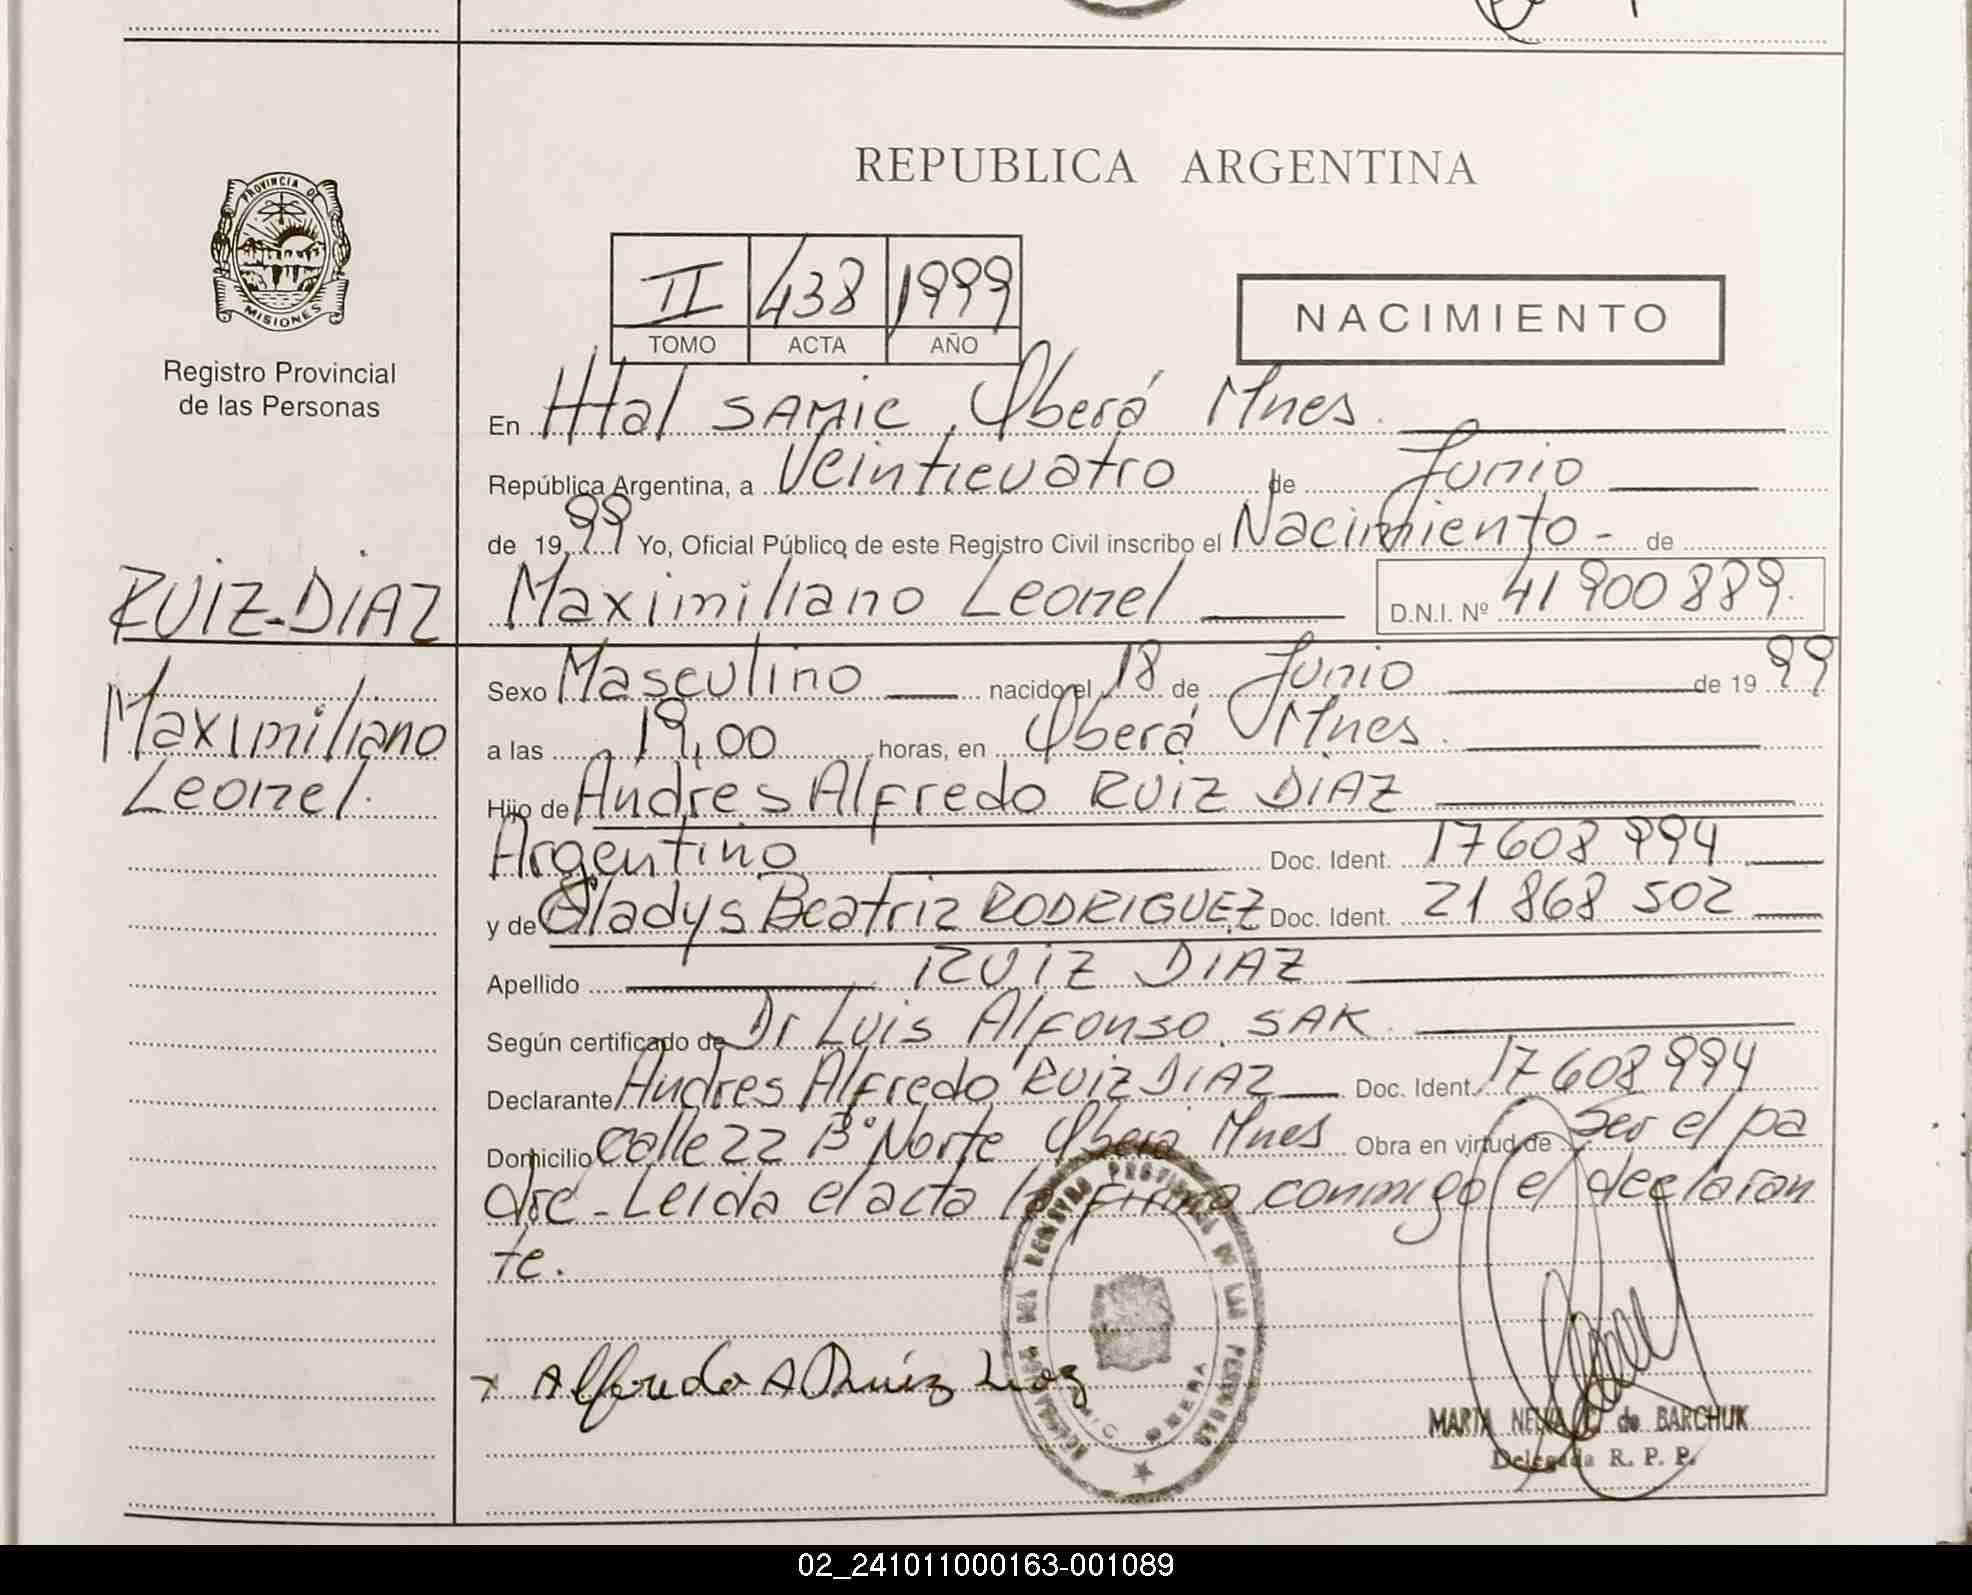 REPUBLICA ARGENTINA
PROVINCIA DE
MISIONES
Registro Provincial
de las Personas
II 438 1999
TOMO ACTA AÑO
NACIMIENTO
En Htal SAMIC, Oberá Mnes.
República Argentina, a Veinticuatro de Junio
de 1999 Yo, Oficial Público de este Registro Civil inscribo el Nacimiento - de
RUIZ-DIAZ
Maximiliano Leonel D.N.I. Nº 41 900 889.
Maximiliano
Leonel.
Sexo Masculino nacido el 18 de Junio de 1999
a las 19,00 horas, en Oberá Mnes.
Hijo de Andres Alfredo RUIZ DIAZ
Argentino Doc. Ident. 17 608 994
y de Gladys Beatriz RODRIGUEZ Doc. Ident. 21 868 502
Apellido RUIZ DIAZ
Según certificado de Dr Luis Alfonso SAK
Declarante Andres Alfredo RUIZ DIAZ Doc. Ident. 17 608 994
Domicilio Calle 22 Bº Norte Oberá Mnes Obra en virtud de Ser el pa
dre - Leida el acta la firma conmigo el declaran
te.
x Alfredo A Ruíz Diaz
REGISTRO PROVINCIAL DE LAS PERSONAS
OBERA
MARTA de BARCHUK
Delegada R. P. P.
02_241011000163-001089